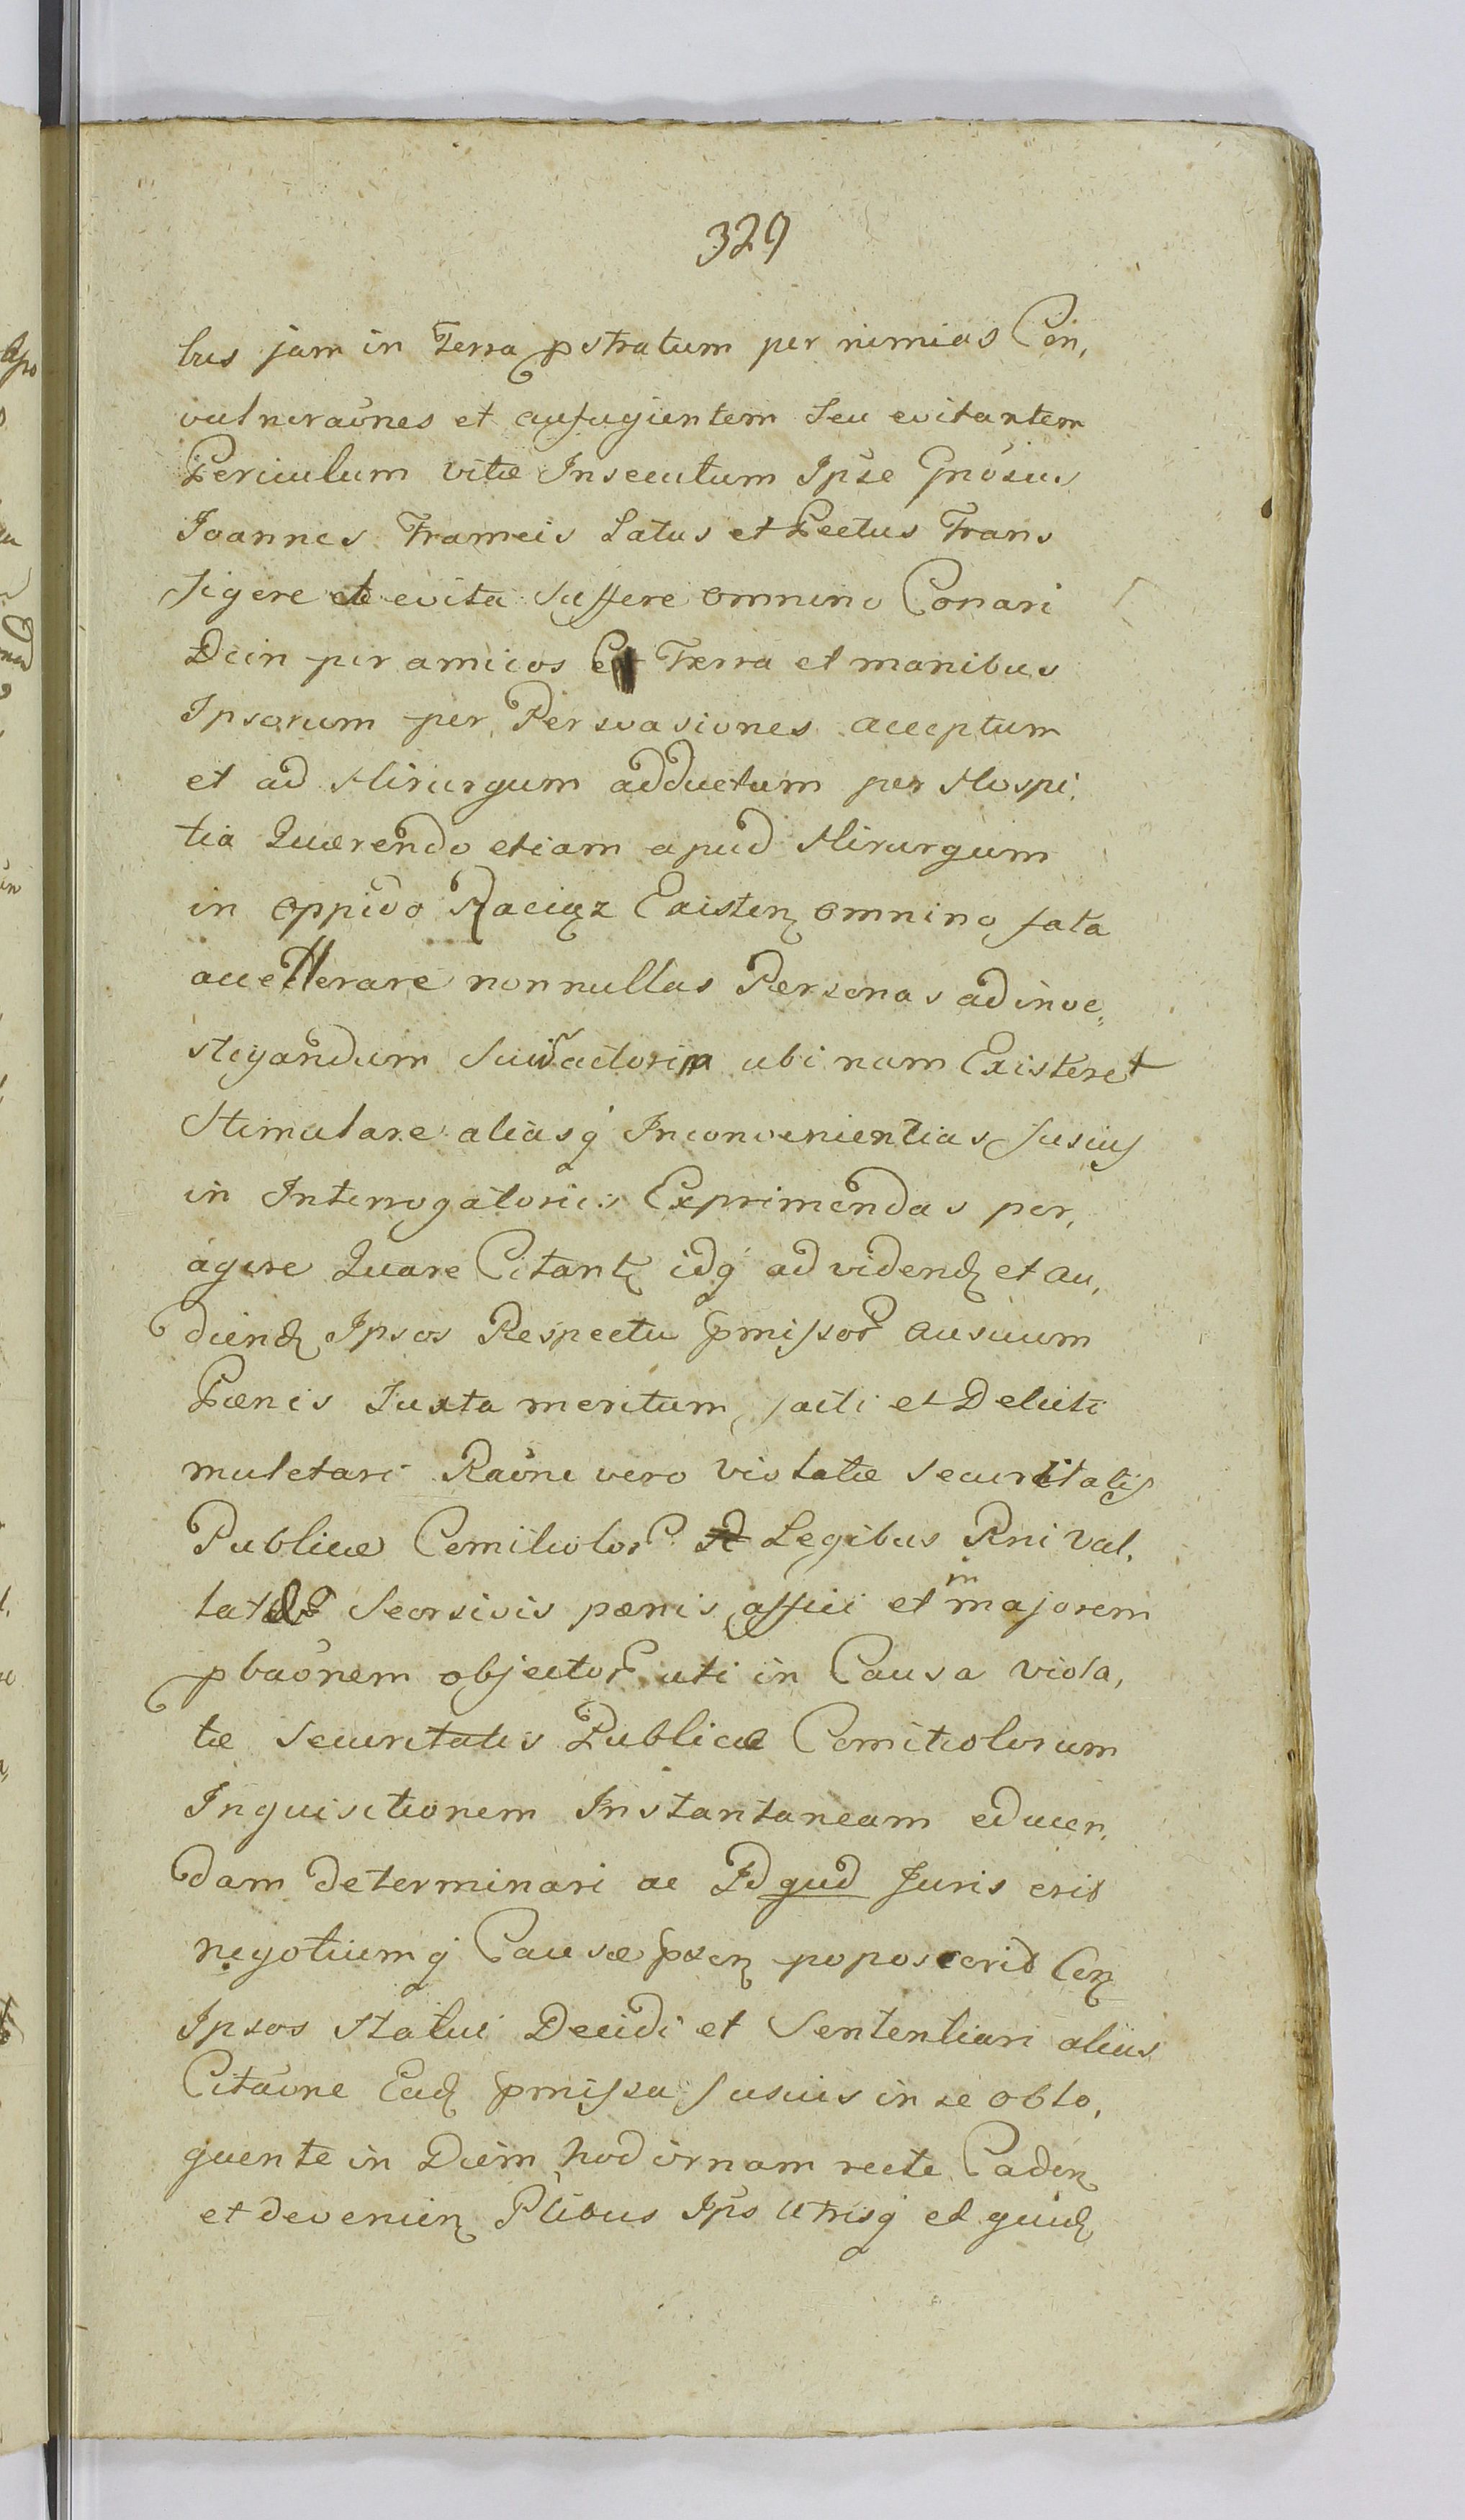 329
bus jam in Terra pstratum per nimias Con,
vulneraões et aufugientem Seu evitantem
Periculum vitæ Insecutum Ipse Gnosus
Joannes Frameis Latus et Pectus Trans
figere et e vita Suffere omnino Conari
Dein per amicos Ex Terra et manibus
Ipsorum per Persvasiones acceptum
et ad Hirurgum adductum per Hospi,
tia Quærendo etiam apud Hirurgum
in oppido Raciąz Existen omnino fata
accellerare nonnullas Personas ad inve,
stigandum Sui actorem ubi nam Existeret
Stimulare aliasq Inconvenientias fusius
in Interrogatoriis Exprimendas per,
agere Quare Citant idq ad vidend et au,
diend Ipsos Respectu pmissor ausuum
Pænis Juxta meritum facti et Delicti
mulctari Raõne vero violatæ Securitatis
Publicæ Comitiolor Legibus Rni Val,
lat Seorsivis pænis affici et in majorem
pbaõnem objector uti in Causa viola,
tæ Securitatis Publicæ Comitiolorum
Inquisitionem Instantaneam educen,
dam determinari ac Id qud Juris erit
negotiumq Causæ psen poposcerit Cen
Ipsos Statui Decidi et Sententiari alias
Citaõne Ead pmissa fusius in se oblo,
quente in Diem hodiernam recte Caden
et devenien Ptibus Ips utrisq et quid